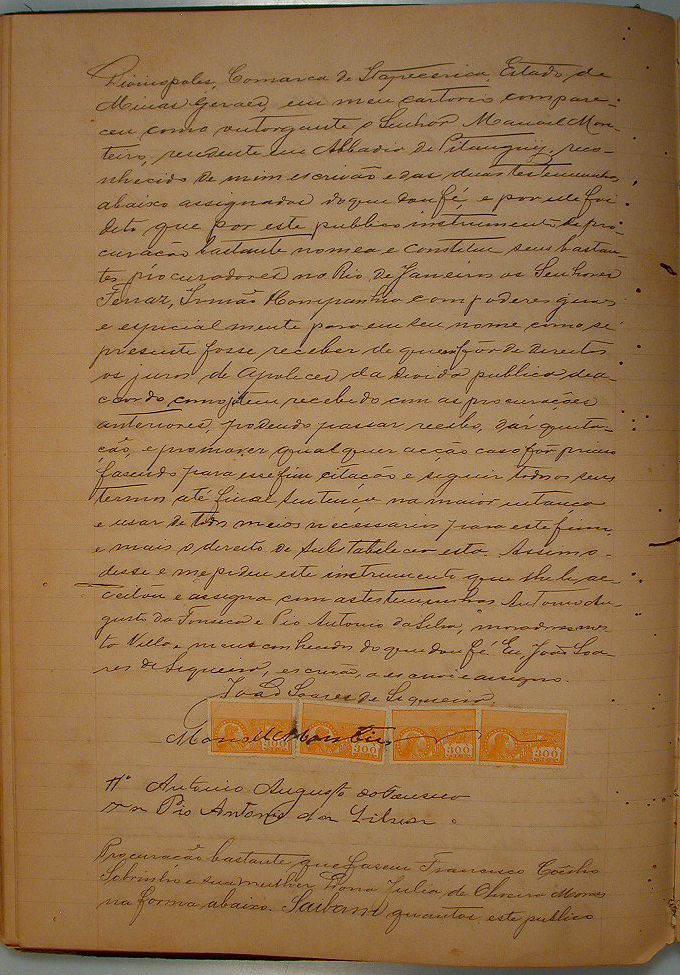 Divinopoles, Comarca de Itapecerica, Estado de
Minas Geraes, em meu cartorio compare-
ceu como outorgante o Senhor Manoel Mon-
teiro, residente em Abbadia de Pitanguy, reco-
nhecido de mim escrivão e das duas testemunhas
abaixo assignadas do que dou fé, e por elle foi
dito que por este publico instrumento de pro-
curação bastante nomea e constitue seus bastan-
tes procuradores no Rio de Janeiro os Senhores
Ferraz, Irmão & Companhia com poderes geraes
e especialmente para em seu nome como se
presente fosse receber de quem fôr de direito
os juros de apolices da divida publica dea-
cordo, como já tem recebido com as procurações
anteriores, podendo passar recibo, dár quita-
ção, e promover qualquer acção caso fôr preciso
fasendo para esse fim citação e seguir todos os seus
termos até final sentença na maior instança
e usar de todos meios nécessarios para este fim,
e mais o direito de substabelecer esta. Assim o
disse e me pediu este instrumento que lhe li, ac-
ceitou e assigna com as testemunhas Antonio Au-
gusto da Fonseca e Pio Antonio da Silva, moradores nes-
ta Villa e meus conhecidos do que dou fé. Eu João Soa-
res de Siqueira, escrivão, a escrevi e assigno.
João Soares de Siqueira
Manoel Monteiro
300 300 300 300
Antonio Augusto da Fonseca
Pio Antonio da Silva
Procuração bastante que fasem Francisco Coêlho
Sobrinho e sua mulher Dona Julia de Oliveira Moraes
na forma abaixo. Saibam quantos este publico